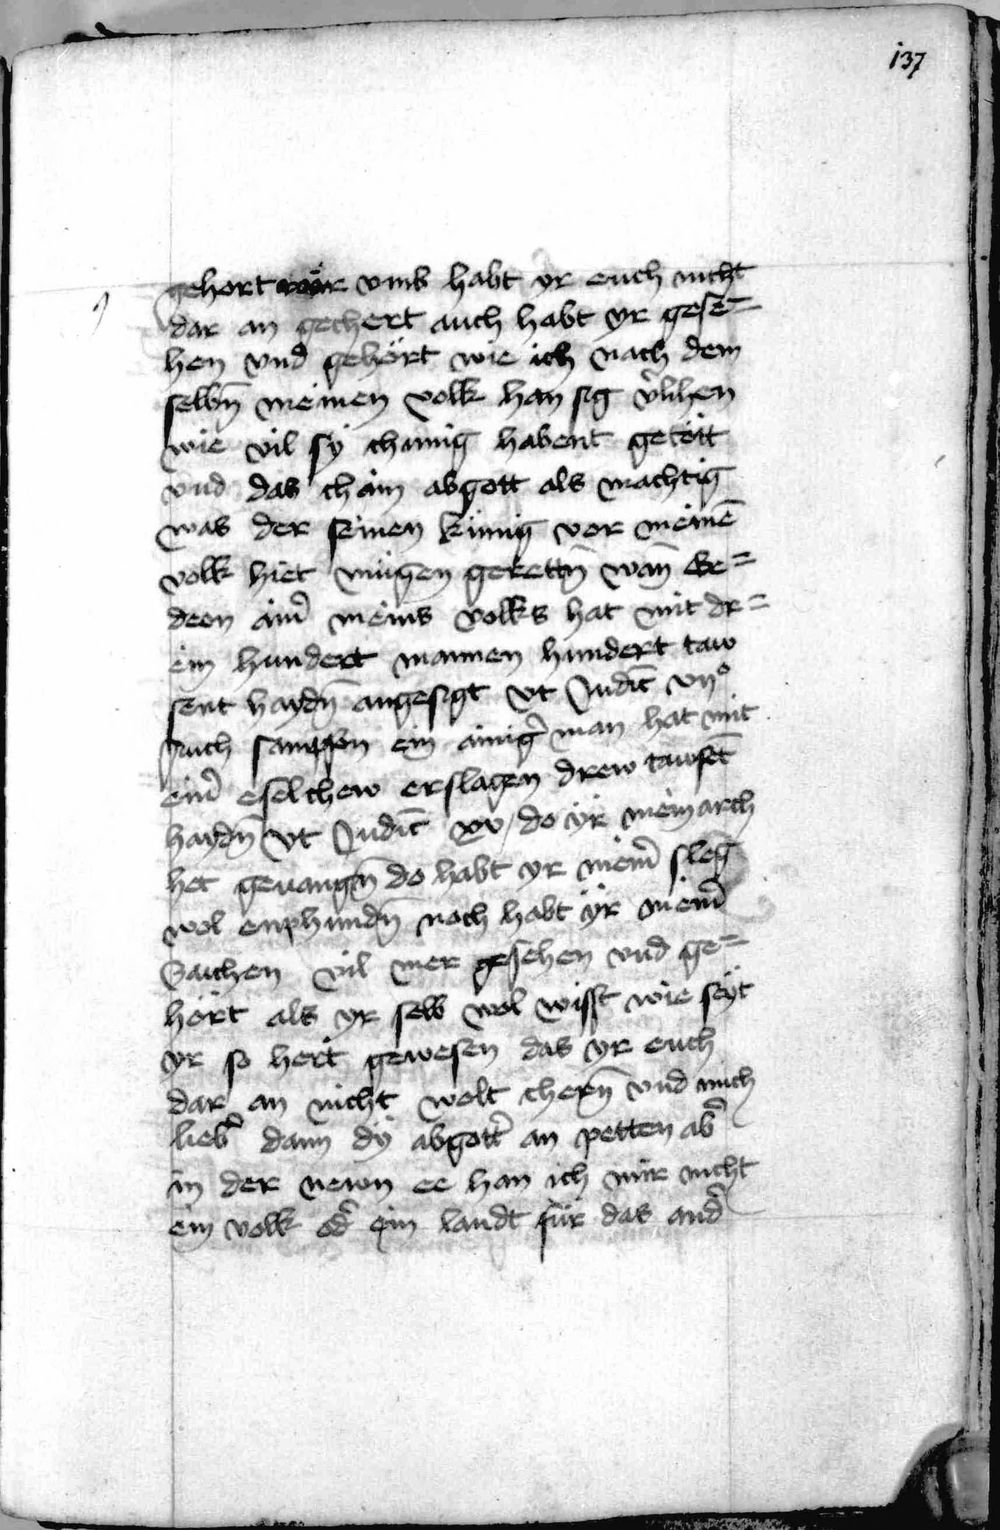 137
gehort war vmb habt yr euch nicht
dar an gechert auch habt yr gese=
hen vnd gehört wie ich nach dem
selbn̄ meinen volk han sig v̉lihen
wie vil sÿ chünig habent getött
vnd das chain abgott als mächtig
was der seinen künig vor meinē
volk hiet mügen gerettn̄ wan̄ Ge=
deon ain̉ meins volks hat mit dr=
ein hundert mannen hundert taw
sent haydn̄ angesigt vt Judic̄ vijo
Auch sampson ein ainig̉ man hat mit
ein̉ eselchew erslagen drew tawsēt
haydn̄ vt Judic̄ xv / do yr mein arch
het geuangn̄ do habt yr mein̉ sleḡ
wol enphundn̄ noch habt ÿr mein̉
Sachen vil mer gesehen vnd ge=
hört als yr selb wol wisst wie seÿt
yr so hert gewesen das yr euch
dar an nicht wolt chern̄ vnd mich
lieb̉ dann dÿ abgött̉ an petten ab̉
in der newn ee han ich mir nicht
ein volk od̉ ein landt für das and̉